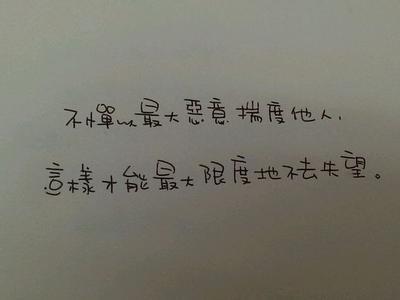 不憚以最大惡意揣度他人,
這樣才能最大限度地不去失望。